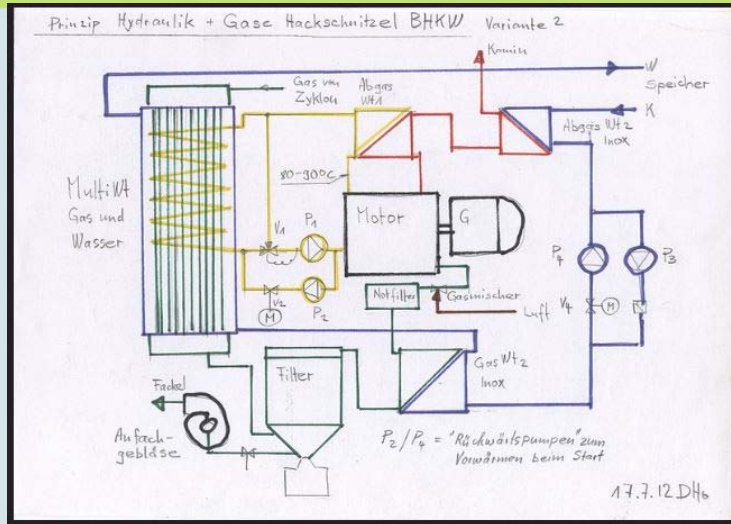 Prinzip Hydraulik + Gase Hackschnitzel BHKW Variante 2
Kamin
W
Speicher
Gas von
Zyklon
Abgas
Wt1
K
Abgas Wt2
Inox
80-90°C
MultiWt
Gas und
Wasser
Motor
G
V1
P1
P4
P3
V2
M
P2
Notfilter
Gasmischer
Luft
V4
M
Filter
Gas Wt2
Inox
Fackel
Anfach-
gebläse
P2/P4 = "Rückwärtspumpen" zum
Vorwärmen beim Start
17.7.12 DHb